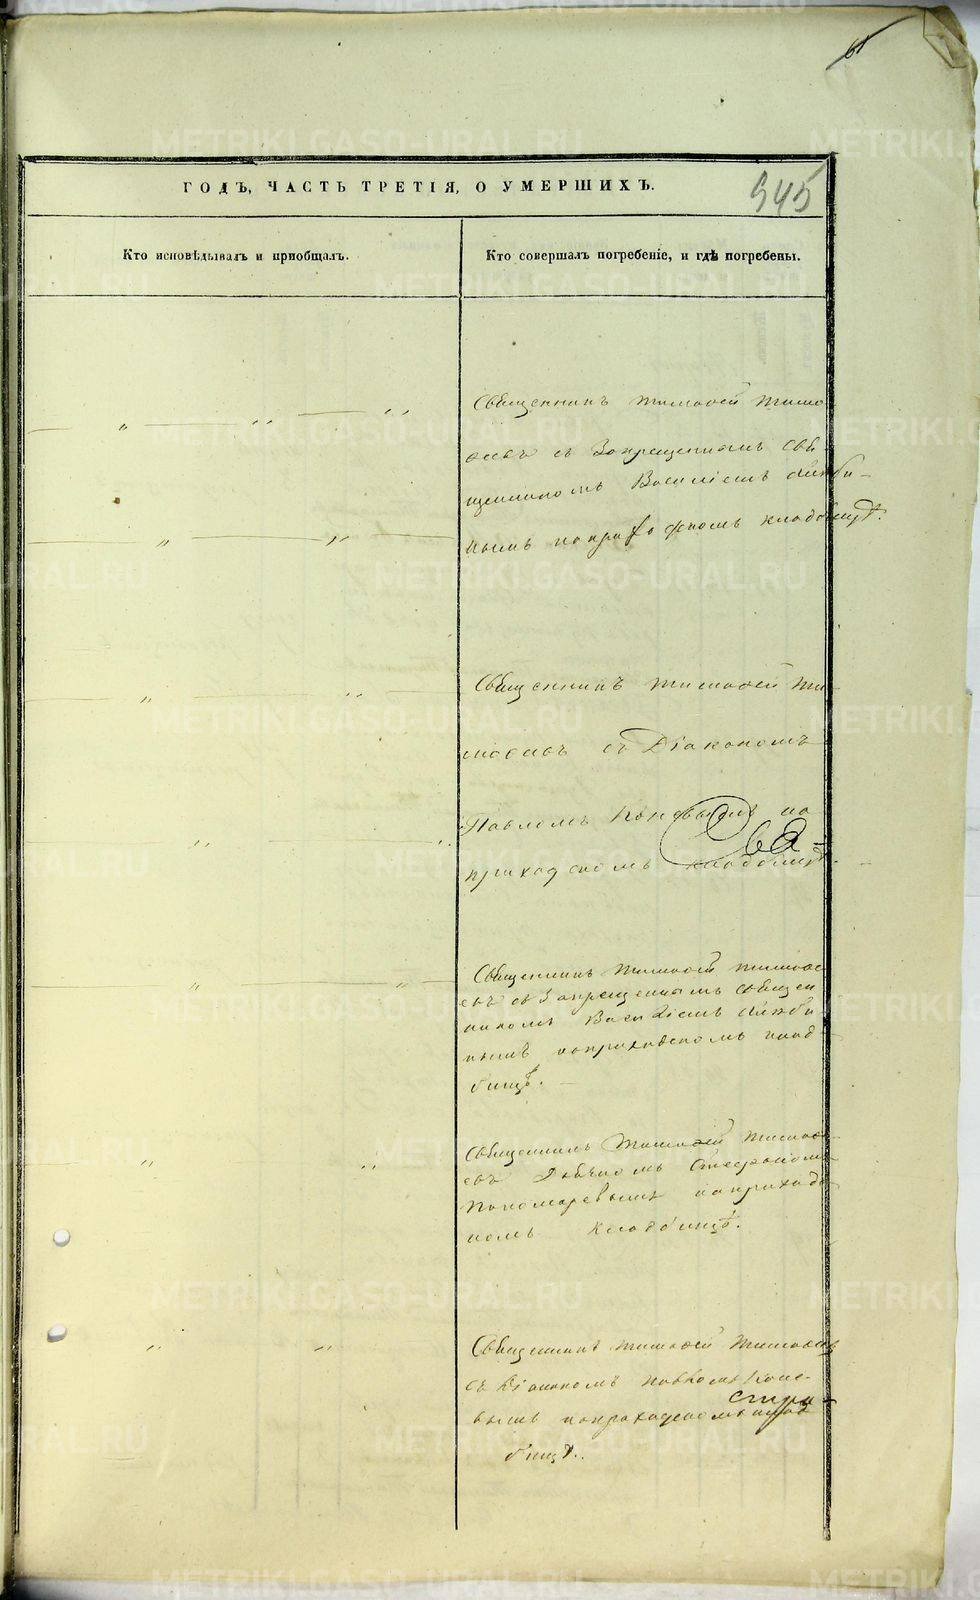 61
945
ГОДЪ, ЧАСТЬ ТРЕТІЯ, О УМЕРШИХЪ.
Кто исповѣдывалъ и пріобщалъ.
Кто совершалъ погребеніе, и гдѣ погребены.
Священникъ Тимофей Тимо
феевъ съ Запрещеннымъ Свя-
щенникомъ Василіемъ
нымъ на приходскомъ кладбищѣ.
Священникъ Тимофей Ти-
мофеевъ съ Діакономъ
Павломъ на
приходскомъ кладбищѣ.
Священникъ Тимофей Тимофе
евъ съ Запрещеннымъ Священ
никомъ Василіемъ
нымъ на приходскомъ клад-
бищѣ. —
Священникъ Тимофей Тимофе-
евъ Дьячкомъ Стефаномъ
Пономаревымъ на приходс
комъ кладбищѣ.
Священникъ Тимофей Тимофеевъ
съ Діакономъ Павломъ Коне-
вымъ на приходскомъ клад
бищѣ.
METRIKI.GASO-URAL.RU